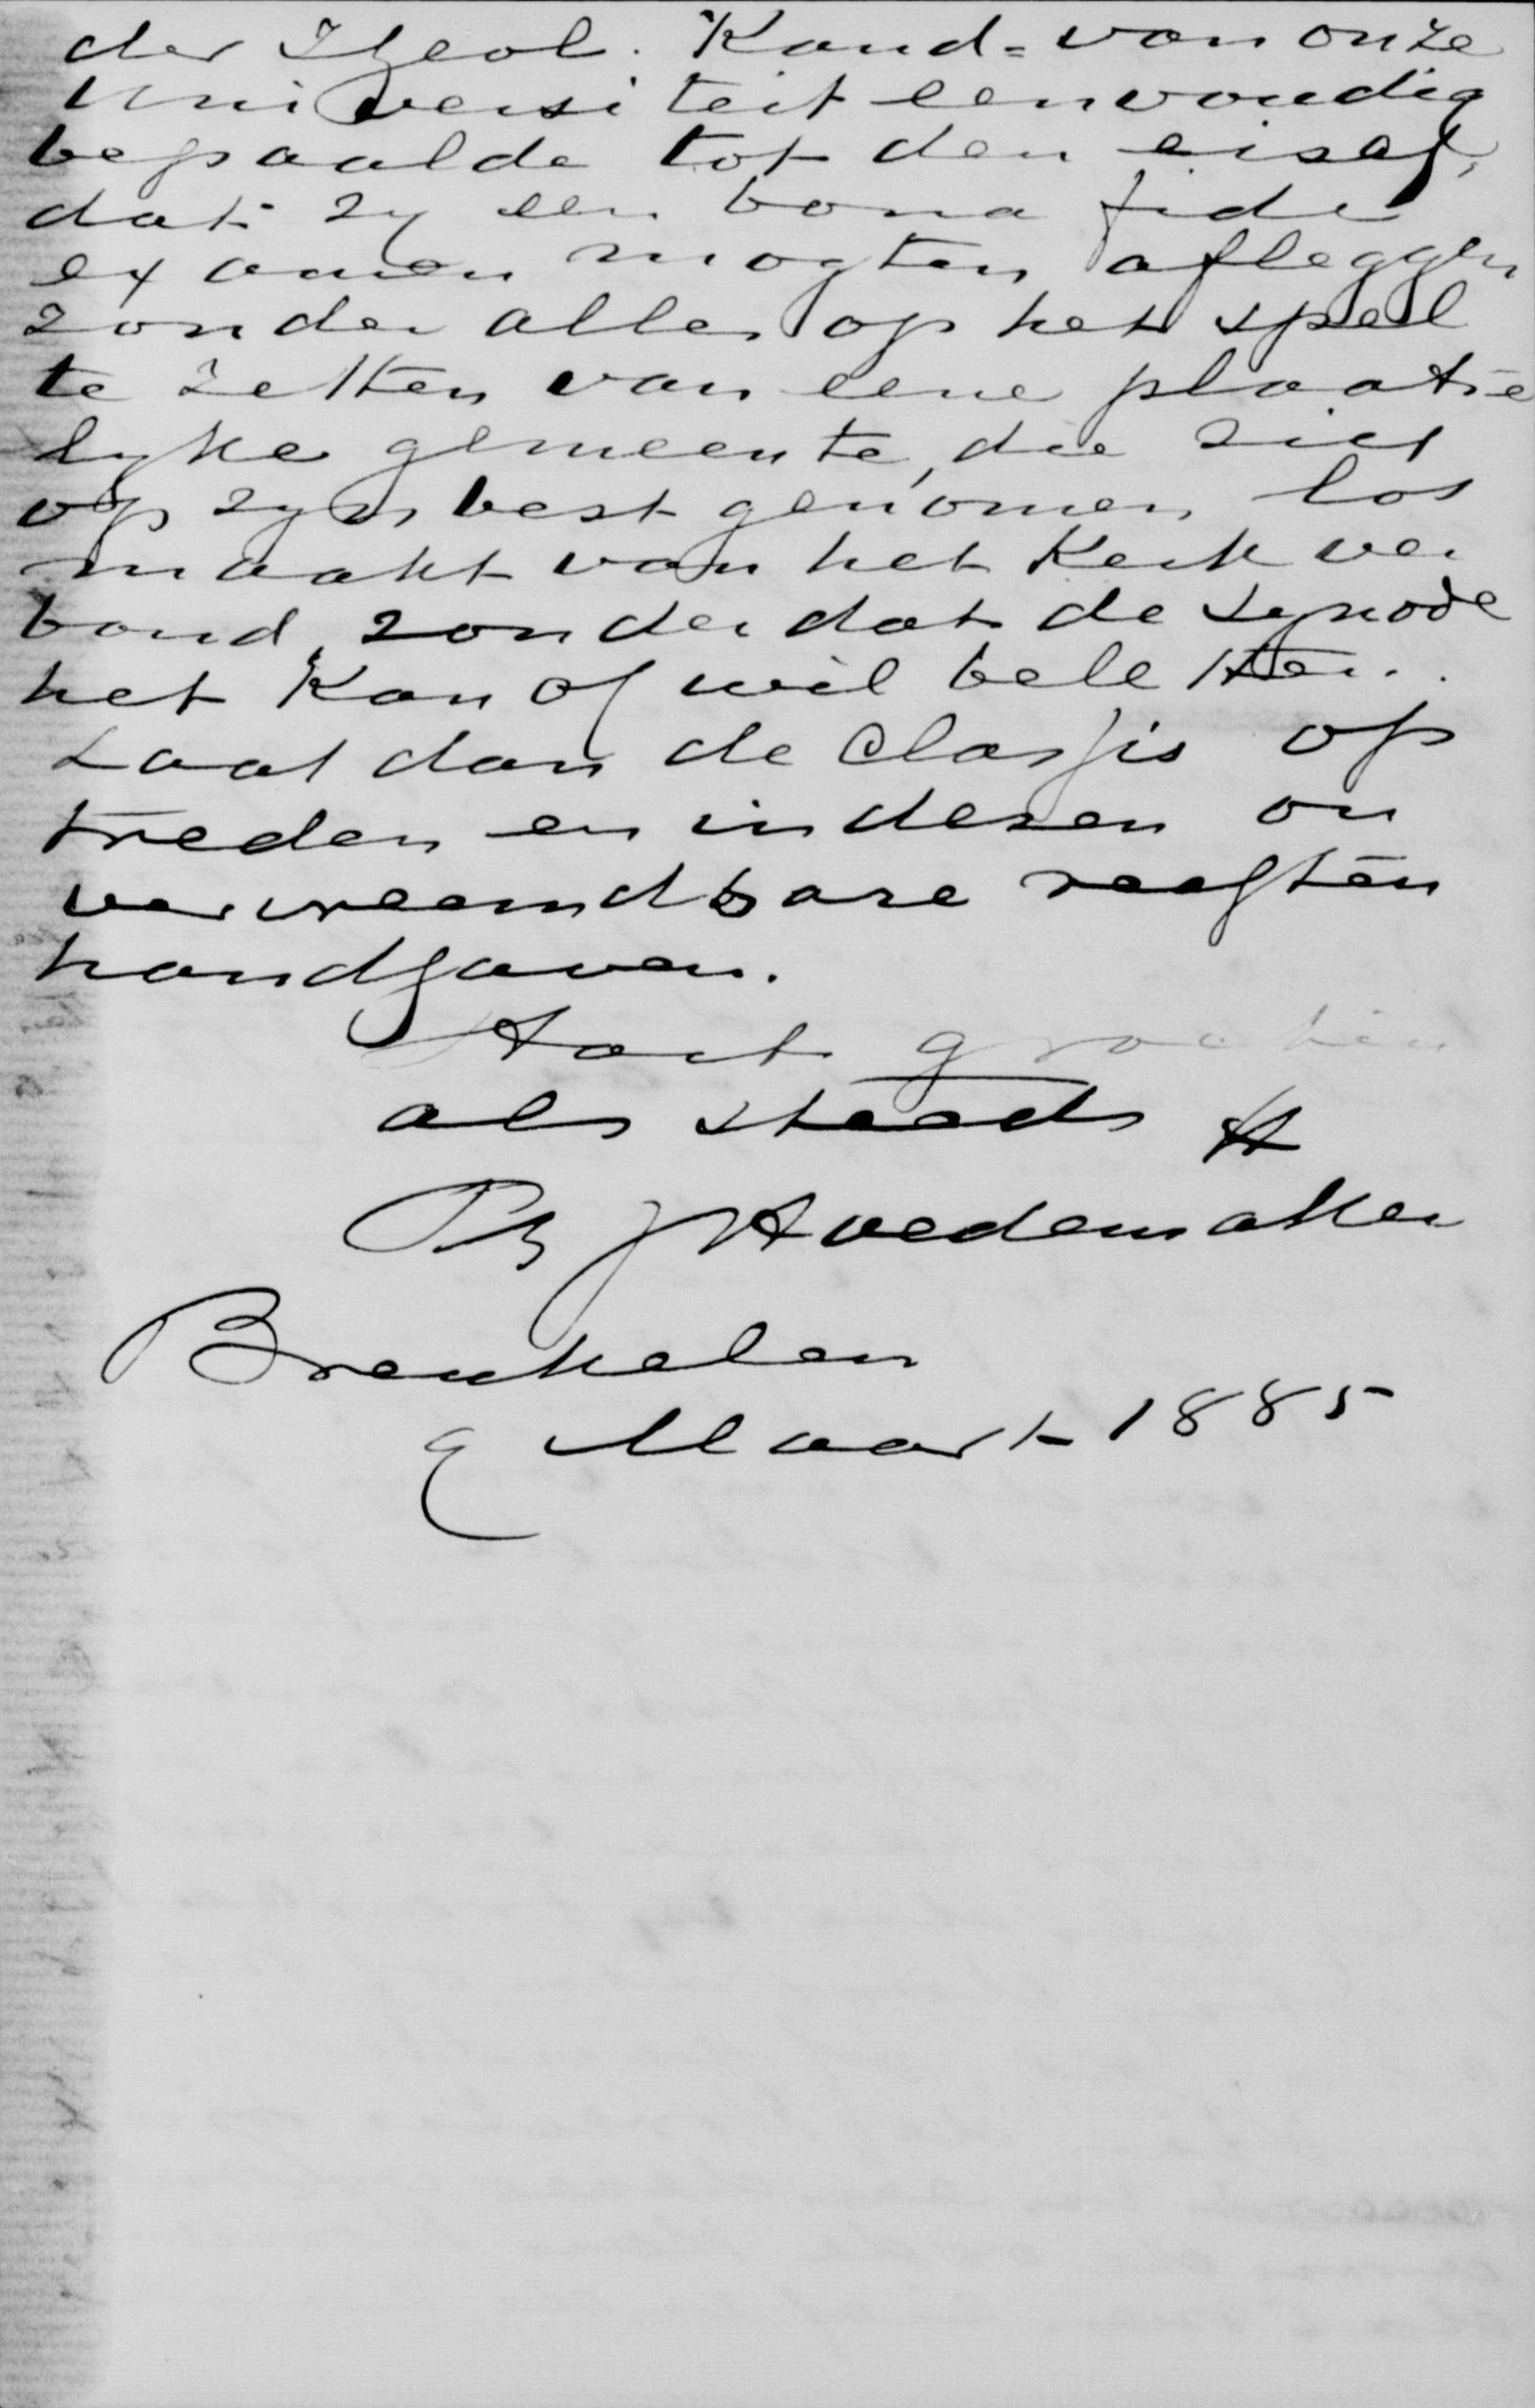 der Theol. Kand= van onze
Universiteit eenvoudig
bepaalde tot den eisch,
dat zy een bona fide
examen mogten afleggen
zonder alles op het spel
te zetten van eene plaatse
lyke gemeente, die zich
op zyn best genomen los
maakt van het Kerk ver
band, zonder dat de Synode
het kan of wil beletten.
Laat dan de Classis op
treden en in dezen on
vervreemdbare rechten
handhaven.
Hart groetend
als steeds tt
Ph J Hoedemaker
Breukelen
9 Maart 1885